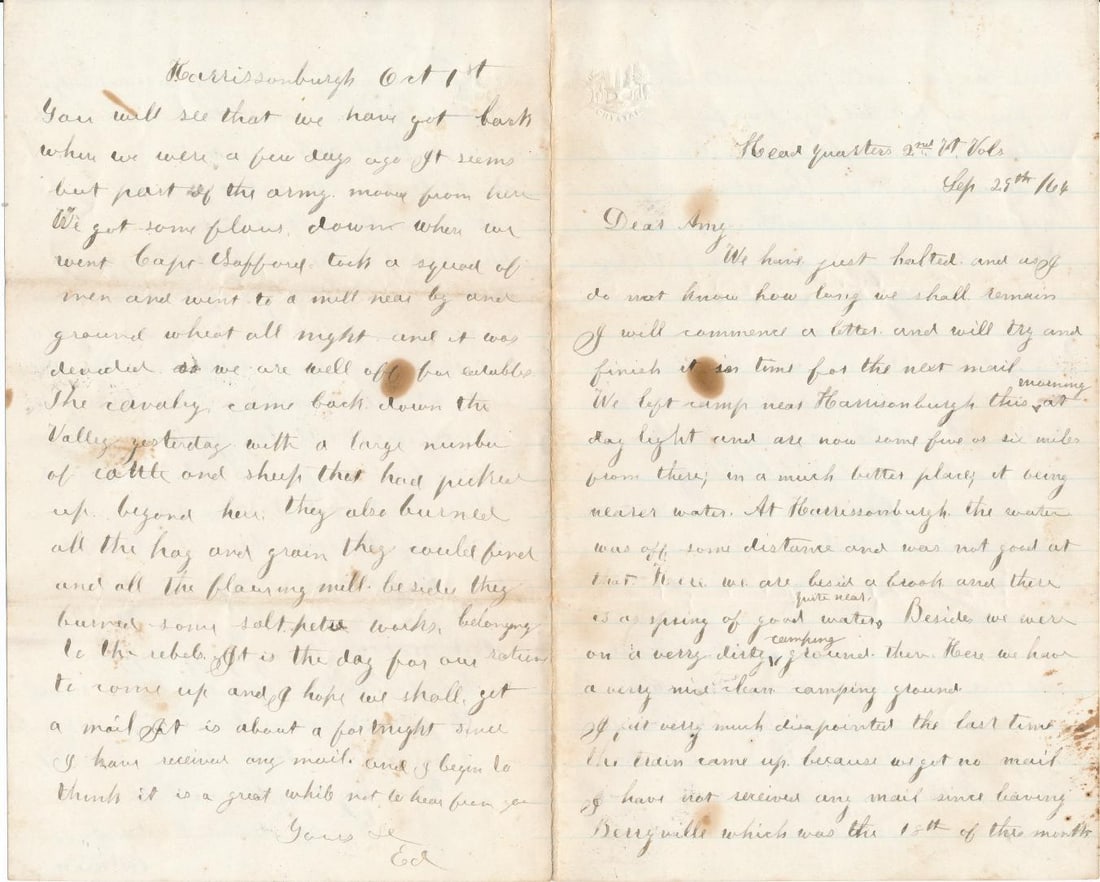 Head Quarters 2nd Vt. Vols
Sep 29th /64
Dear Amy
We have just halted and as I
do not know how long we shall remain
I will commence a letter and will try and
finish it in time for the next mail
We left camp near Harrisonburgh this morning at
day light and are now some five or six miles
from there, in a much better place, it being
nearer water. At Harrissonburgh the water
was off some distance and was not good at
that. Here we are besid a brook and there
is a spring of good water quite near. Besides we were
on a verry dirty camping ground then. Here we have
a very nice clean camping ground
I felt very much disapointed the last time
the train came up because we got no mail
I have not received any mail since leaving
Berryville which was the 18th of this month
Harrissonburgh Oct 1st
You will see that we have got back
where we were a few days ago It seems
but part of the army move from here
We got some flour down where we
went Capt Safford took a squad of
men and went to a mill near by and
ground wheat all night and it was
devided so we are well off for eatables
The cavalry came back down the
Valley yesterday with a large number
of cattle and sheep that had picked
up beyond here, they also burned
all the hay and grain they could find
and all the flouring mill besides they
burned some salt petre works, belonging
to the rebels. It is the day for our rations
to come up and I hope we shall get
a mail It is about a fortnight since
I have received any mail and I begin to
think it is a great while not to hear from you
Yours &c
Ed